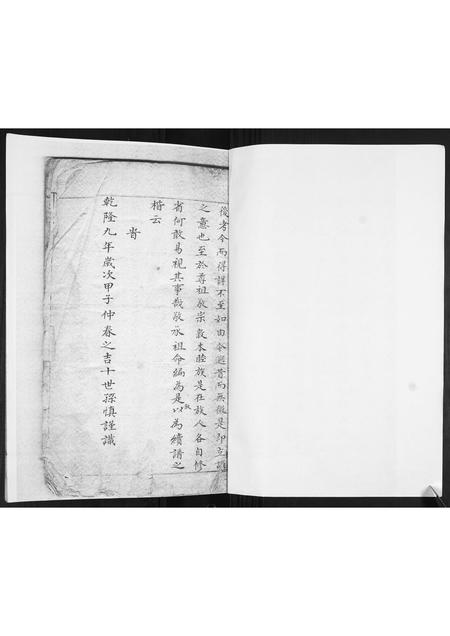 後者今而得詳不至如由今遡昔而無徵是即立譜
之意也至於尊祖敬宗敦本睦族是在族人各自修
省何敢易視其事哉敬承祖命編為是以為續譜之
楷云
旹
乾隆九年歲次甲子仲春之吉十世孫慎謹識